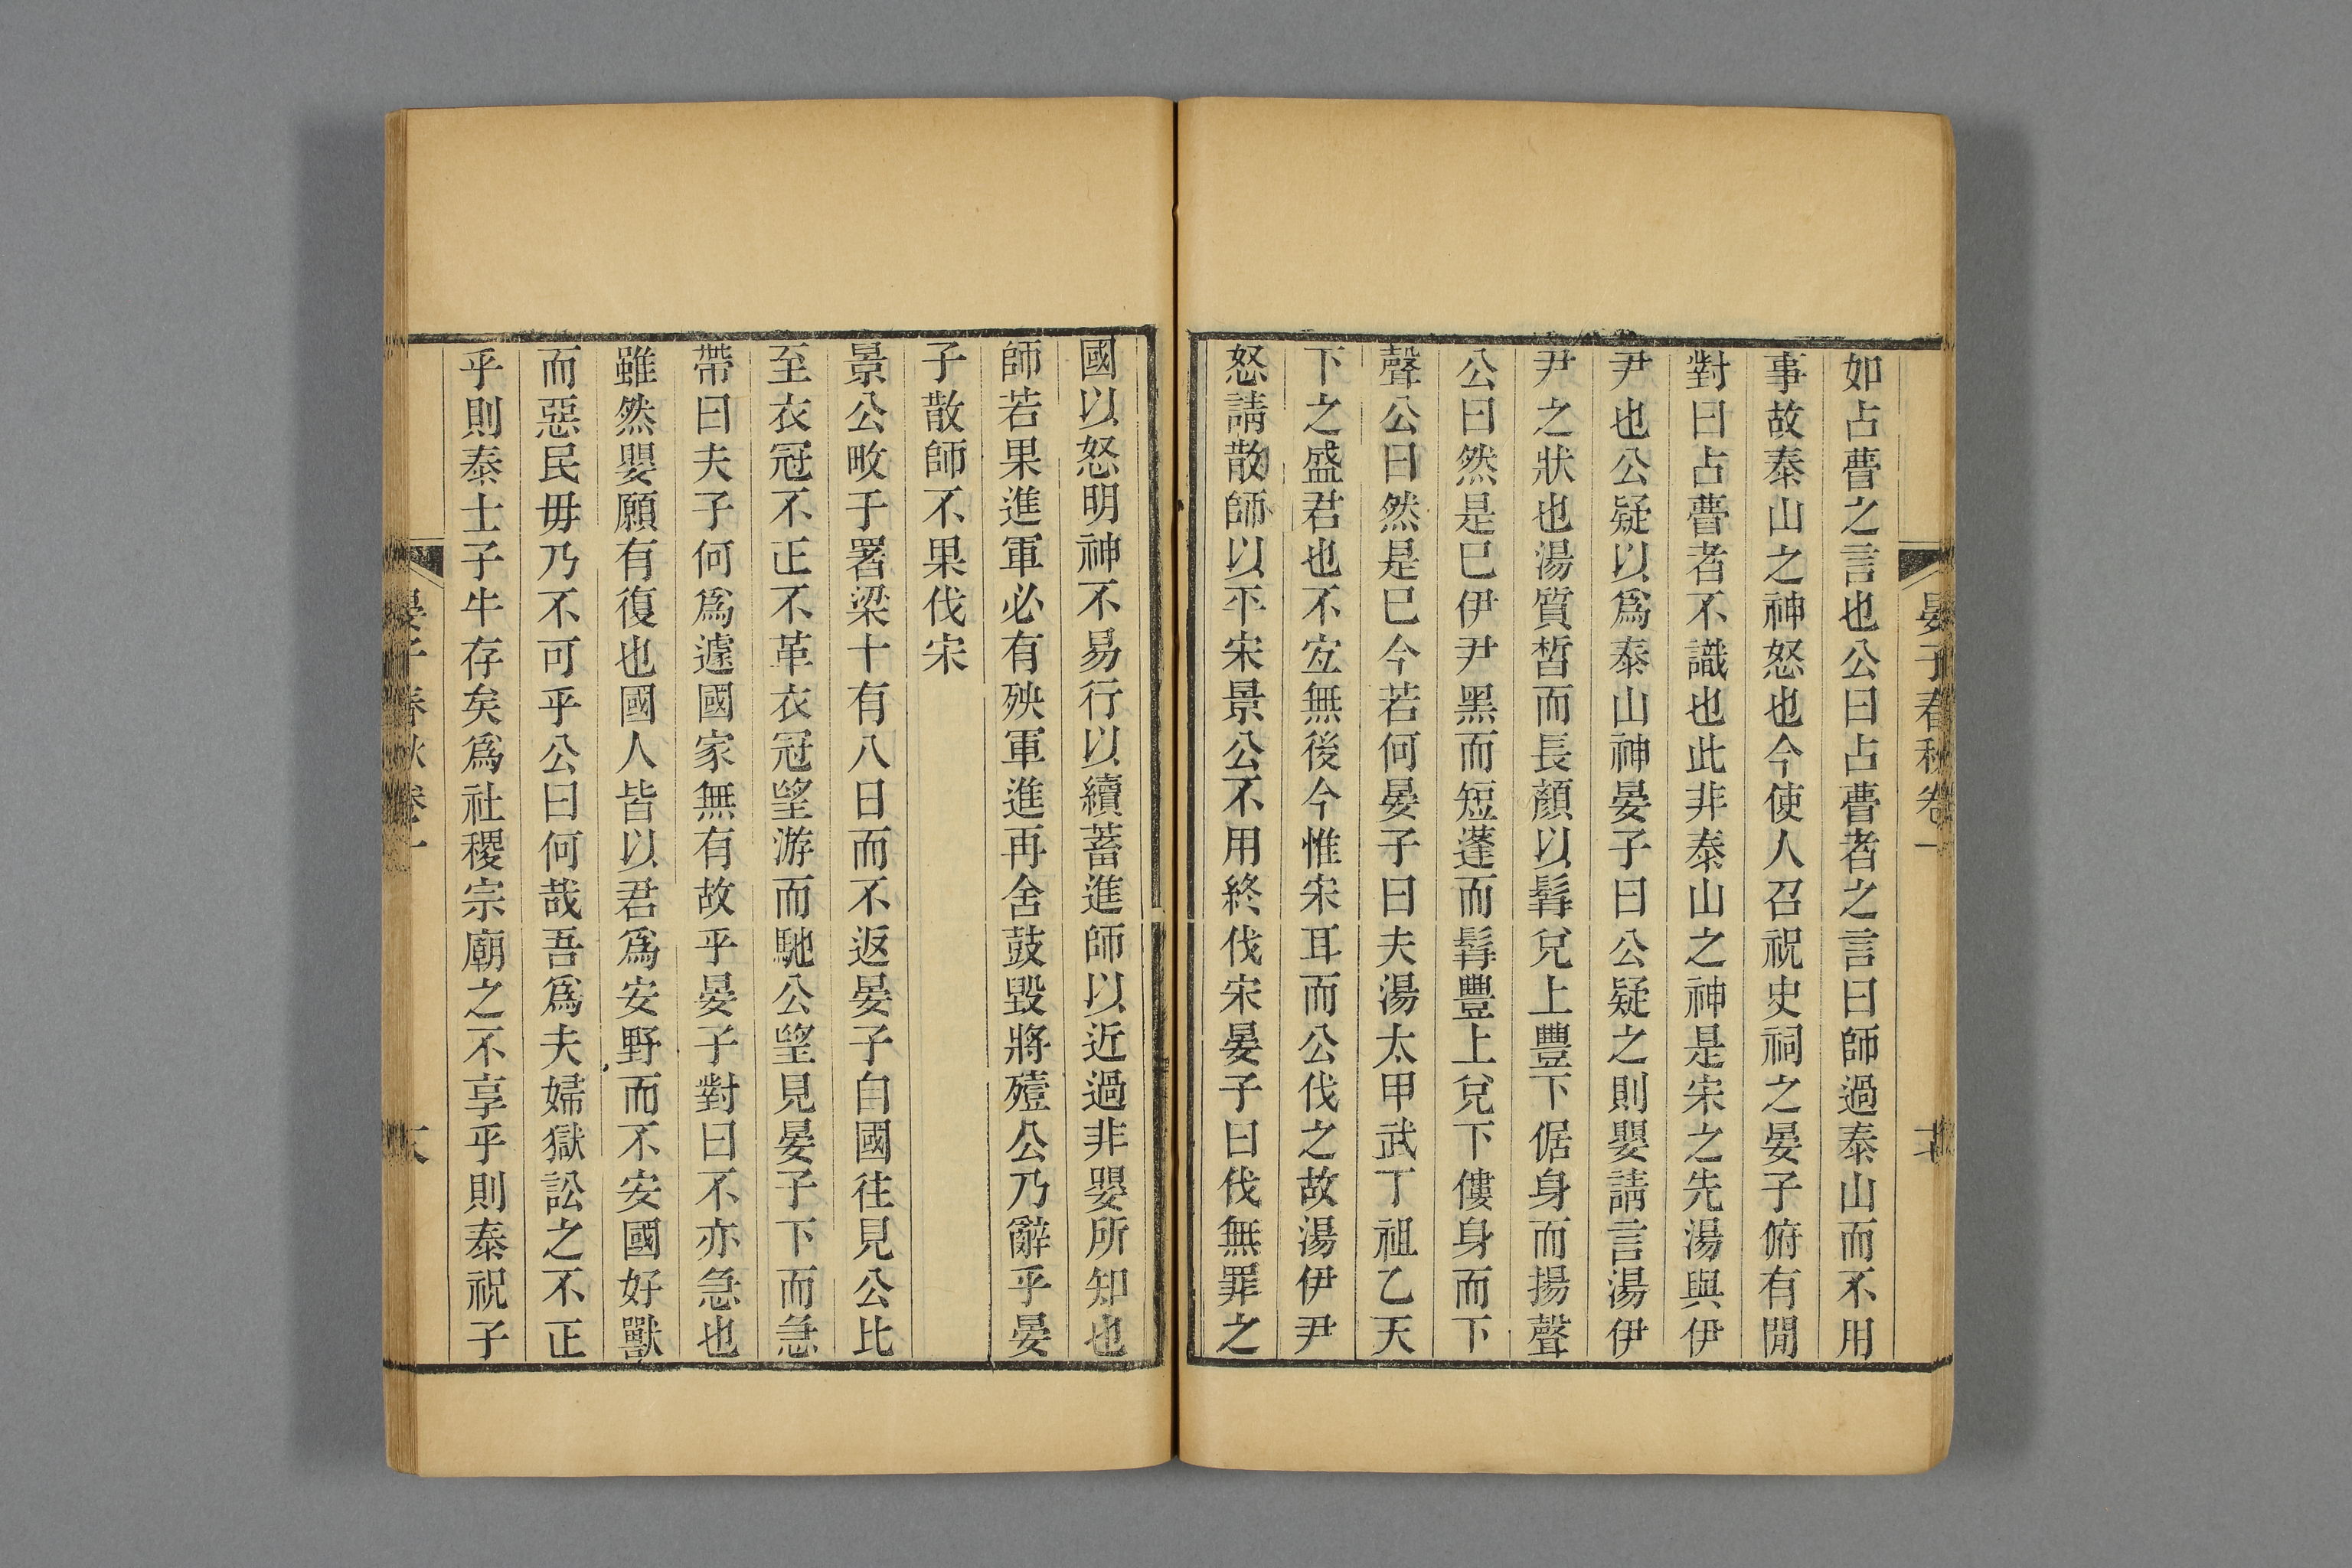 晏子春秋卷一
如占瞢之言也公曰占瞢者之言曰師過泰山而不用
事故泰山之神怒也今使人召祝史祠之晏子俯有閒
對曰占瞢者不識也此非泰山之神是宋之先湯與伊
尹也公疑以爲泰山神晏子曰公疑之則嬰請言湯伊
尹之狀也湯質晳而長顏以髯兌上豐下倨身而揚聲
公曰然是巳伊尹黑而短蓬而髯豐上兌下僂身而下
聲公曰然是巳今若何晏子曰夫湯太甲武丁祖乙天
下之盛君也不宐無後今惟宋耳而公伐之故湯伊尹
怒請散師以平宋景公不用終伐宋晏子曰伐無罪之
國以怒明神不易行以續蓄進師以近過非嬰所知也
師若果進軍必有殃軍進再舍鼓毀將殪公乃辭乎晏
子散師不果伐宋
景公畋于署梁十有八日而不返晏子自國往見公比
至衣冠不正不革衣冠望游而馳公望見晏子下而急
帶曰夫子何爲遽國家無有故乎晏子對曰不亦急也
雖然嬰願有復也國人皆以君爲安野而不安國好獸
而惡民毋乃不可乎公曰何哉吾爲夫婦獄訟之不正
乎則泰士子牛存矣爲社稷宗廟之不享乎則泰祝子
晏子春秋卷一